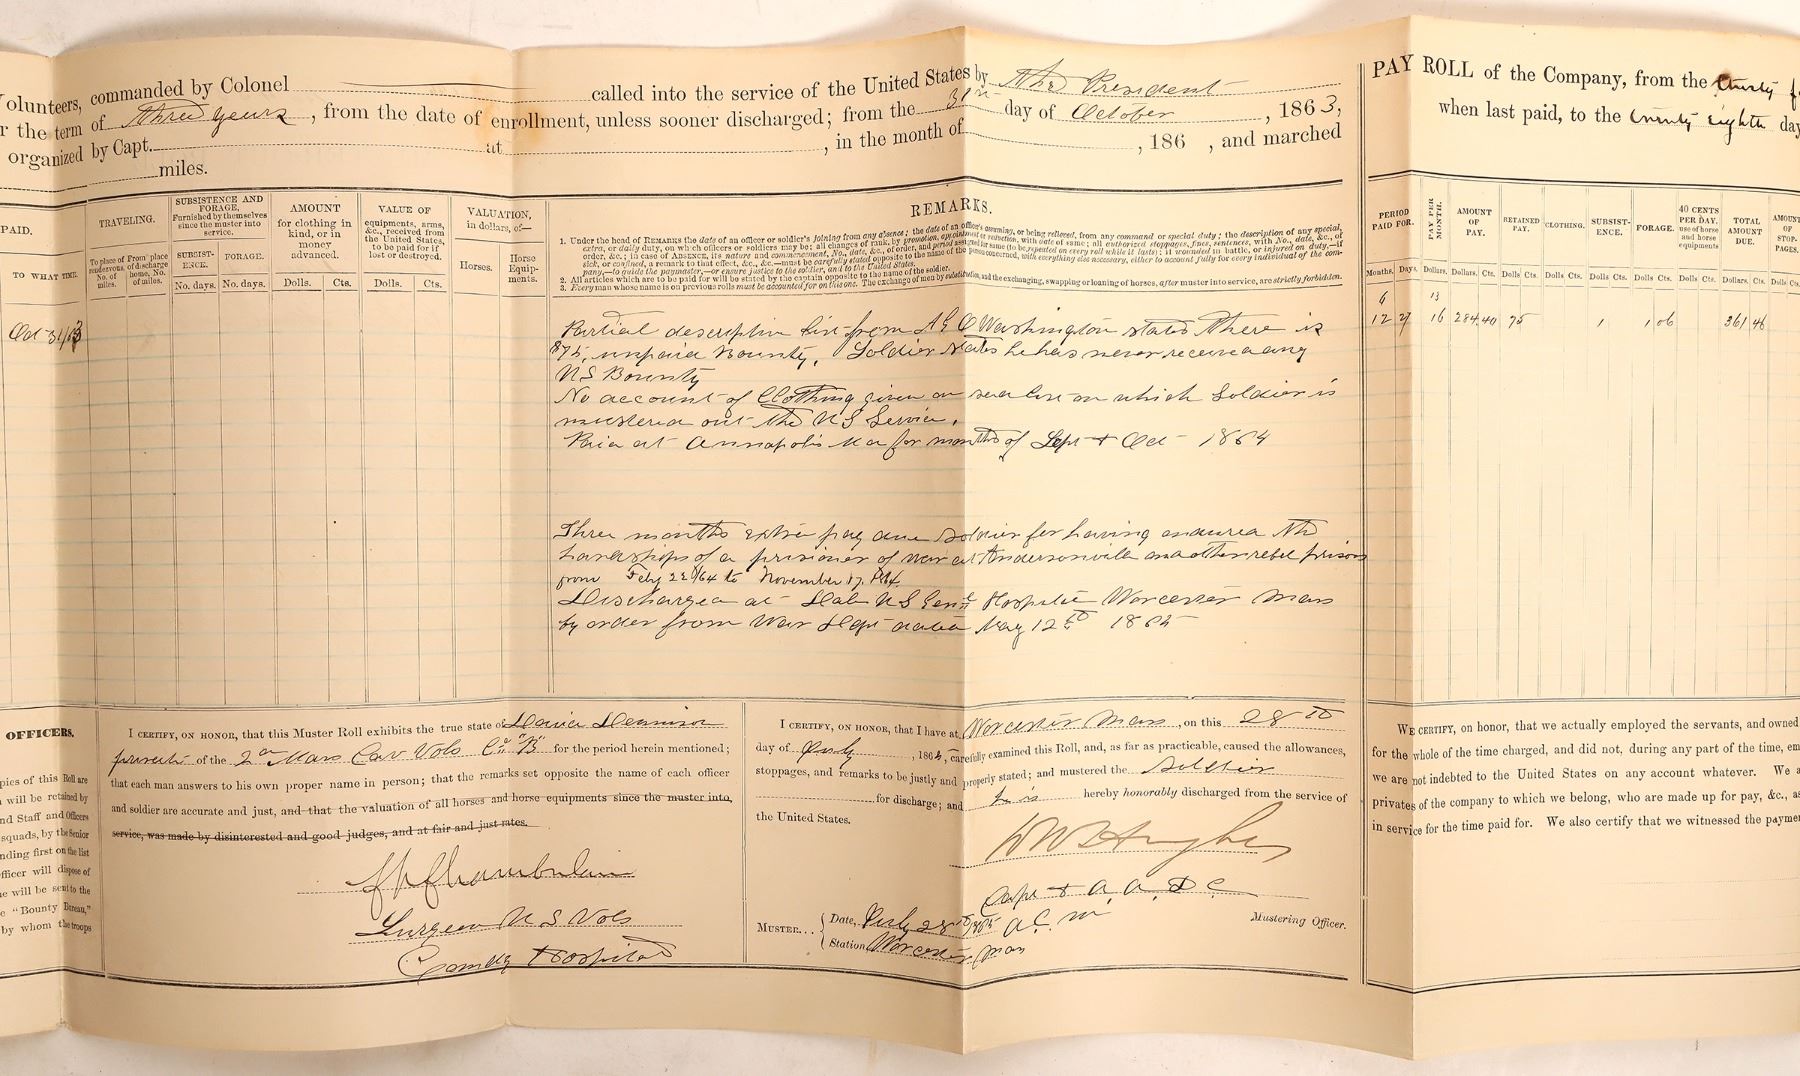 Volunteers, commanded by Colonel called into the service of the United States by The President
r the term of three years, from the date of enrollment, unless sooner discharged; from the 31st day of October, 1863,
organized by Capt. at , in the month of , 186 , and marched
miles.
PAID.
TO WHAT TIME.
TRAVELING.
To place of rendezvous, No. of miles.
From place of discharge home, No. of miles.
SUBSISTENCE AND FORAGE,
Furnished by themselves since the muster into service.
SUBSISTENCE.
FORAGE.
No. days. No. days.
AMOUNT
for clothing in kind, or in money advanced.
Dolls. Cts.
VALUE OF
equipments, arms, &c., received from the United States, to be paid for if lost or destroyed.
Dolls. Cts.
VALUATION,
in dollars, of—
Horses.
Horse Equipments.
REMARKS.
1. Under the head of REMARKS the date of an officer or soldier's joining from any absence; the date of an officer's assuming, or being relieved, from any command or special duty; the description of any special,
extra, or daily duty, on which officers or soldiers may be; all changes of rank, by promotion, appointment or reduction, with date of same; all authorized stoppages, fines, sentences, with No., date, &c., of
order, &c.; in case of ABSENCE, its nature and commencement, No., date, &c., of order, and period assigned for same (to be repeated on every roll while it lasts); if wounded in battle, or injured on duty,—if
sick, or confined, a remark to that effect, &c., &c.—must be carefully stated opposite to the name of the person concerned, with everything else necessary, either to account fully for every individual of the company,—to guide the paymaster,—or ensure justice to the soldier, and to the United States.
2. All articles which are to be paid for will be stated by the captain opposite to the name of the soldier.
3. Every man whose name is on previous rolls must be accounted for on this one. The exchange of men by substitution, and the exchanging, swapping or loaning of horses, after muster into service, are strictly forbidden.
Oct 31/63
Partial descriptive list from A G O Washington states there is
$75, unpaid Bounty, Soldier states he has never received any
US Bounty
No account of Clothing given on desc list on which Soldier is
mustered out the US Service.
Paid at Annapolis Md for months of Sept & Oct 1864
Three months extra pay due Soldier for having endured the
hardships of a prisoner of war at Andersonville and other rebel prisons
from Feby 22 /64 to November 17, /64
Discharged at Dale US Genl Hospital Worcester Mass
by order from War Dept dated May 12th 1865
OFFICERS.
pies of this Roll are
will be retained by
nd Staff and Officers
squads, by the Senior
nding first on the list
fficer will dispose of
e will be sent to the
e "Bounty Bureau,"
by whom the troops
I CERTIFY, ON HONOR, that this Muster Roll exhibits the true state of David Dennison
private of the 2nd Mass Cav Vols Co "B" for the period herein mentioned;
that each man answers to his own proper name in person; that the remarks set opposite the name of each officer
and soldier are accurate and just, and that the valuation of all horses and horse equipments since the muster into,
service, was made by disinterested and good judges, and at fair and just rates.
Chamberlain
Surgeon U S Vols
Comdg Hospital
I CERTIFY, ON HONOR, that I have at Worcester Mass, on this 28th
day of July, 1865, carefully examined this Roll, and, as far as practicable, caused the allowances,
stoppages, and remarks to be justly and properly stated; and mustered the Soldier
for discharge; and he is hereby honorably discharged from the service of
the United States.
Hughes
Capt & A. A. D. C.
A. C. M
Mustering Officer.
MUSTER... Date, July 28th 1865
Station, Worcester Mass
PAY ROLL of the Company, from the thirty f
when last paid, to the twenty eighth day
PERIOD PAID FOR.
PAY PER MONTH.
AMOUNT OF PAY.
RETAINED PAY.
CLOTHING.
SUBSISTENCE.
FORAGE.
40 CENTS PER DAY, use of horse and horse equipments
TOTAL AMOUNT DUE.
AMOUNT OF STOPPAGES.
Months. Days. Dollars. Dollars. Cts. Dolls Cts. Dolls Cts. Dolls Cts. Dolls Cts. Dolls Cts. Dollars. Cts. Dolls Cts.
6 13
12 27 16 284.40 75 1 1 06 361 46
WE CERTIFY, on honor, that we actually employed the servants, and owned
for the whole of the time charged, and did not, during any part of the time, em
we are not indebted to the United States on any account whatever. We a
privates of the company to which we belong, who are made up for pay, &c., as
in service for the time paid for. We also certify that we witnessed the payme